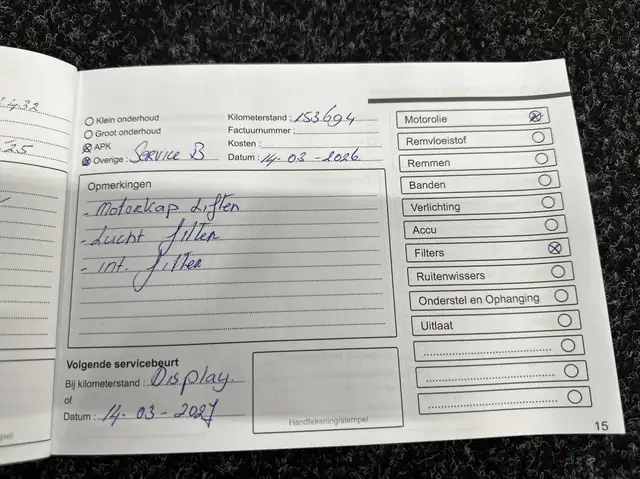 432
25
Klein onderhoud
Groot onderhoud
APK
Overige : Service B
Kilometerstand : 153694
Factuurnummer :
Kosten :
Datum : 14-03-2026
Opmerkingen
- Motorkap Liften
- Lucht filter
- int. filter
Volgende servicebeurt
Bij kilometerstand : Display
of
Datum : 14-03-2027
Handtekening/stempel
Motorolie
Remvloeistof
Remmen
Banden
Verlichting
Accu
Filters
Ruitenwissers
Onderstel en Ophanging
Uitlaat
15